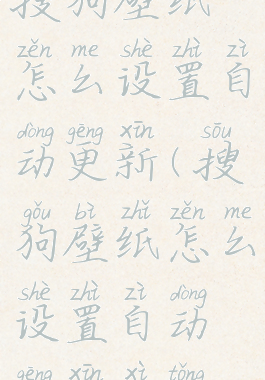 搜狗壁纸
zěn me shè zhì zì
怎么设置自
dòng gēng xīn sōu
动更新（搜
gǒu bì zhǐ zěn me
狗壁纸怎么
shè zhì zì dòng
设置自动
gēng xīn xì tǒng